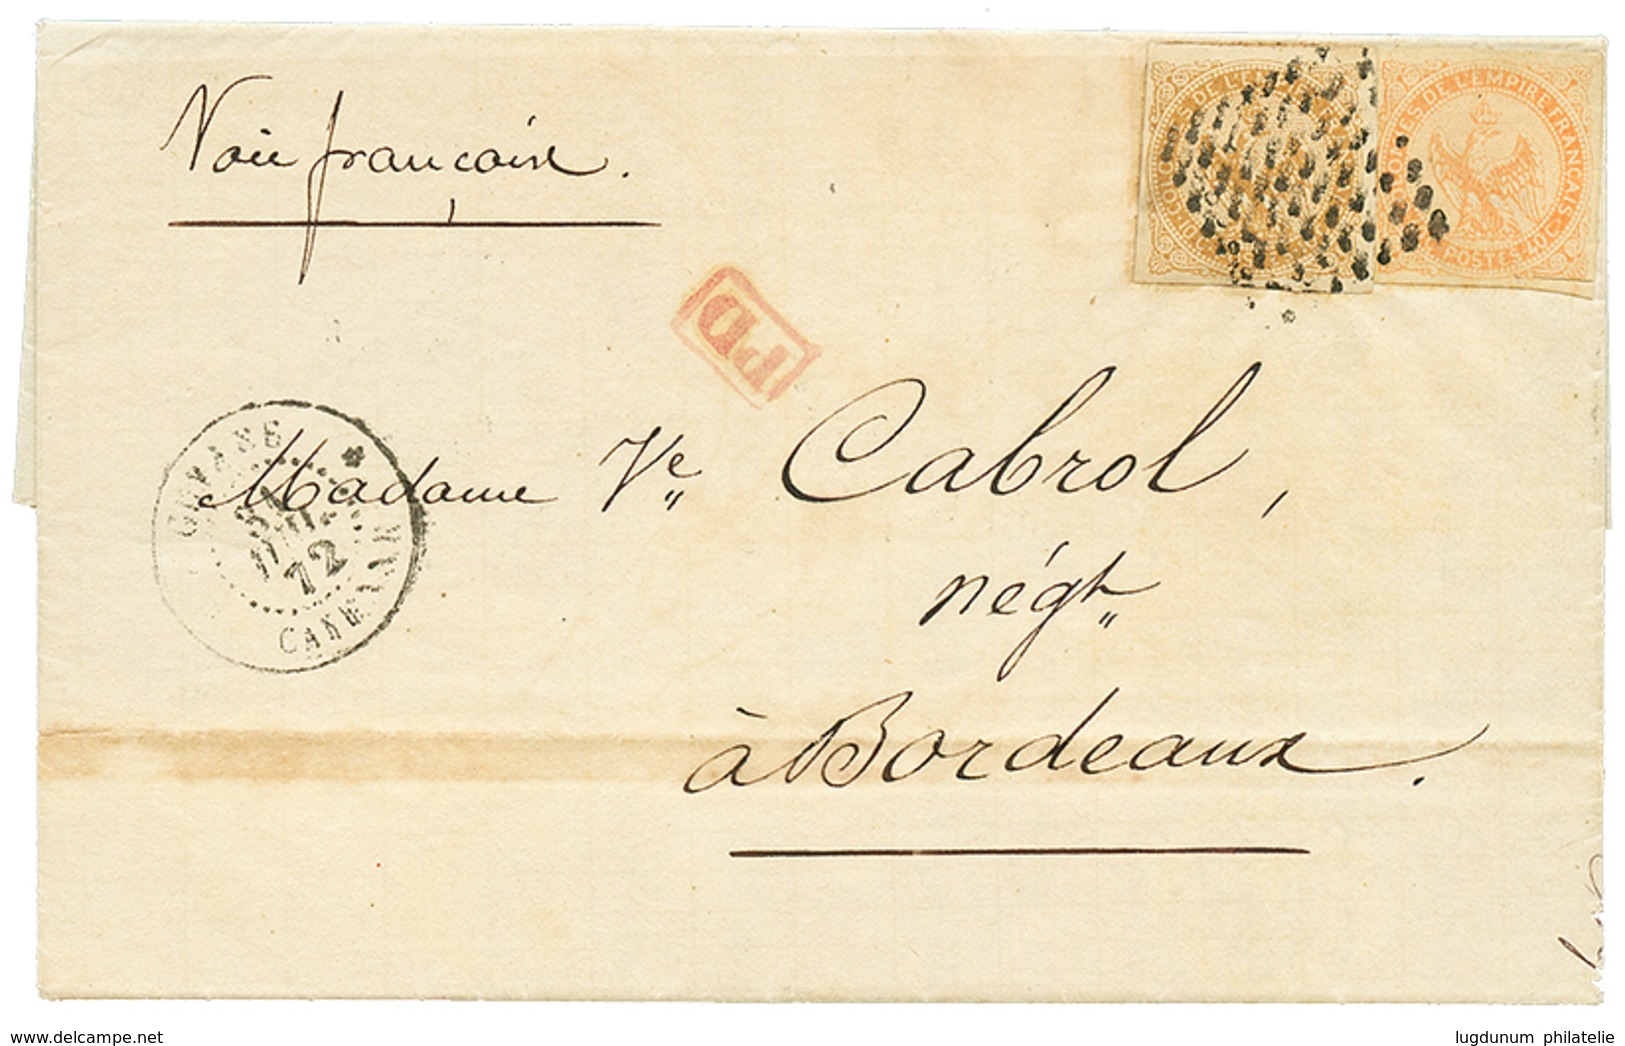 Voie française.
COLONIES DE L'EMPIRE FRANÇAIS
POSTES. 40C.
PD
GUYANE
31
JUIL.
72
CAYENNE
Madame Ve Cabrol,
négt.
à Bordeaux.
delcampe.net
lugdunum philatelie